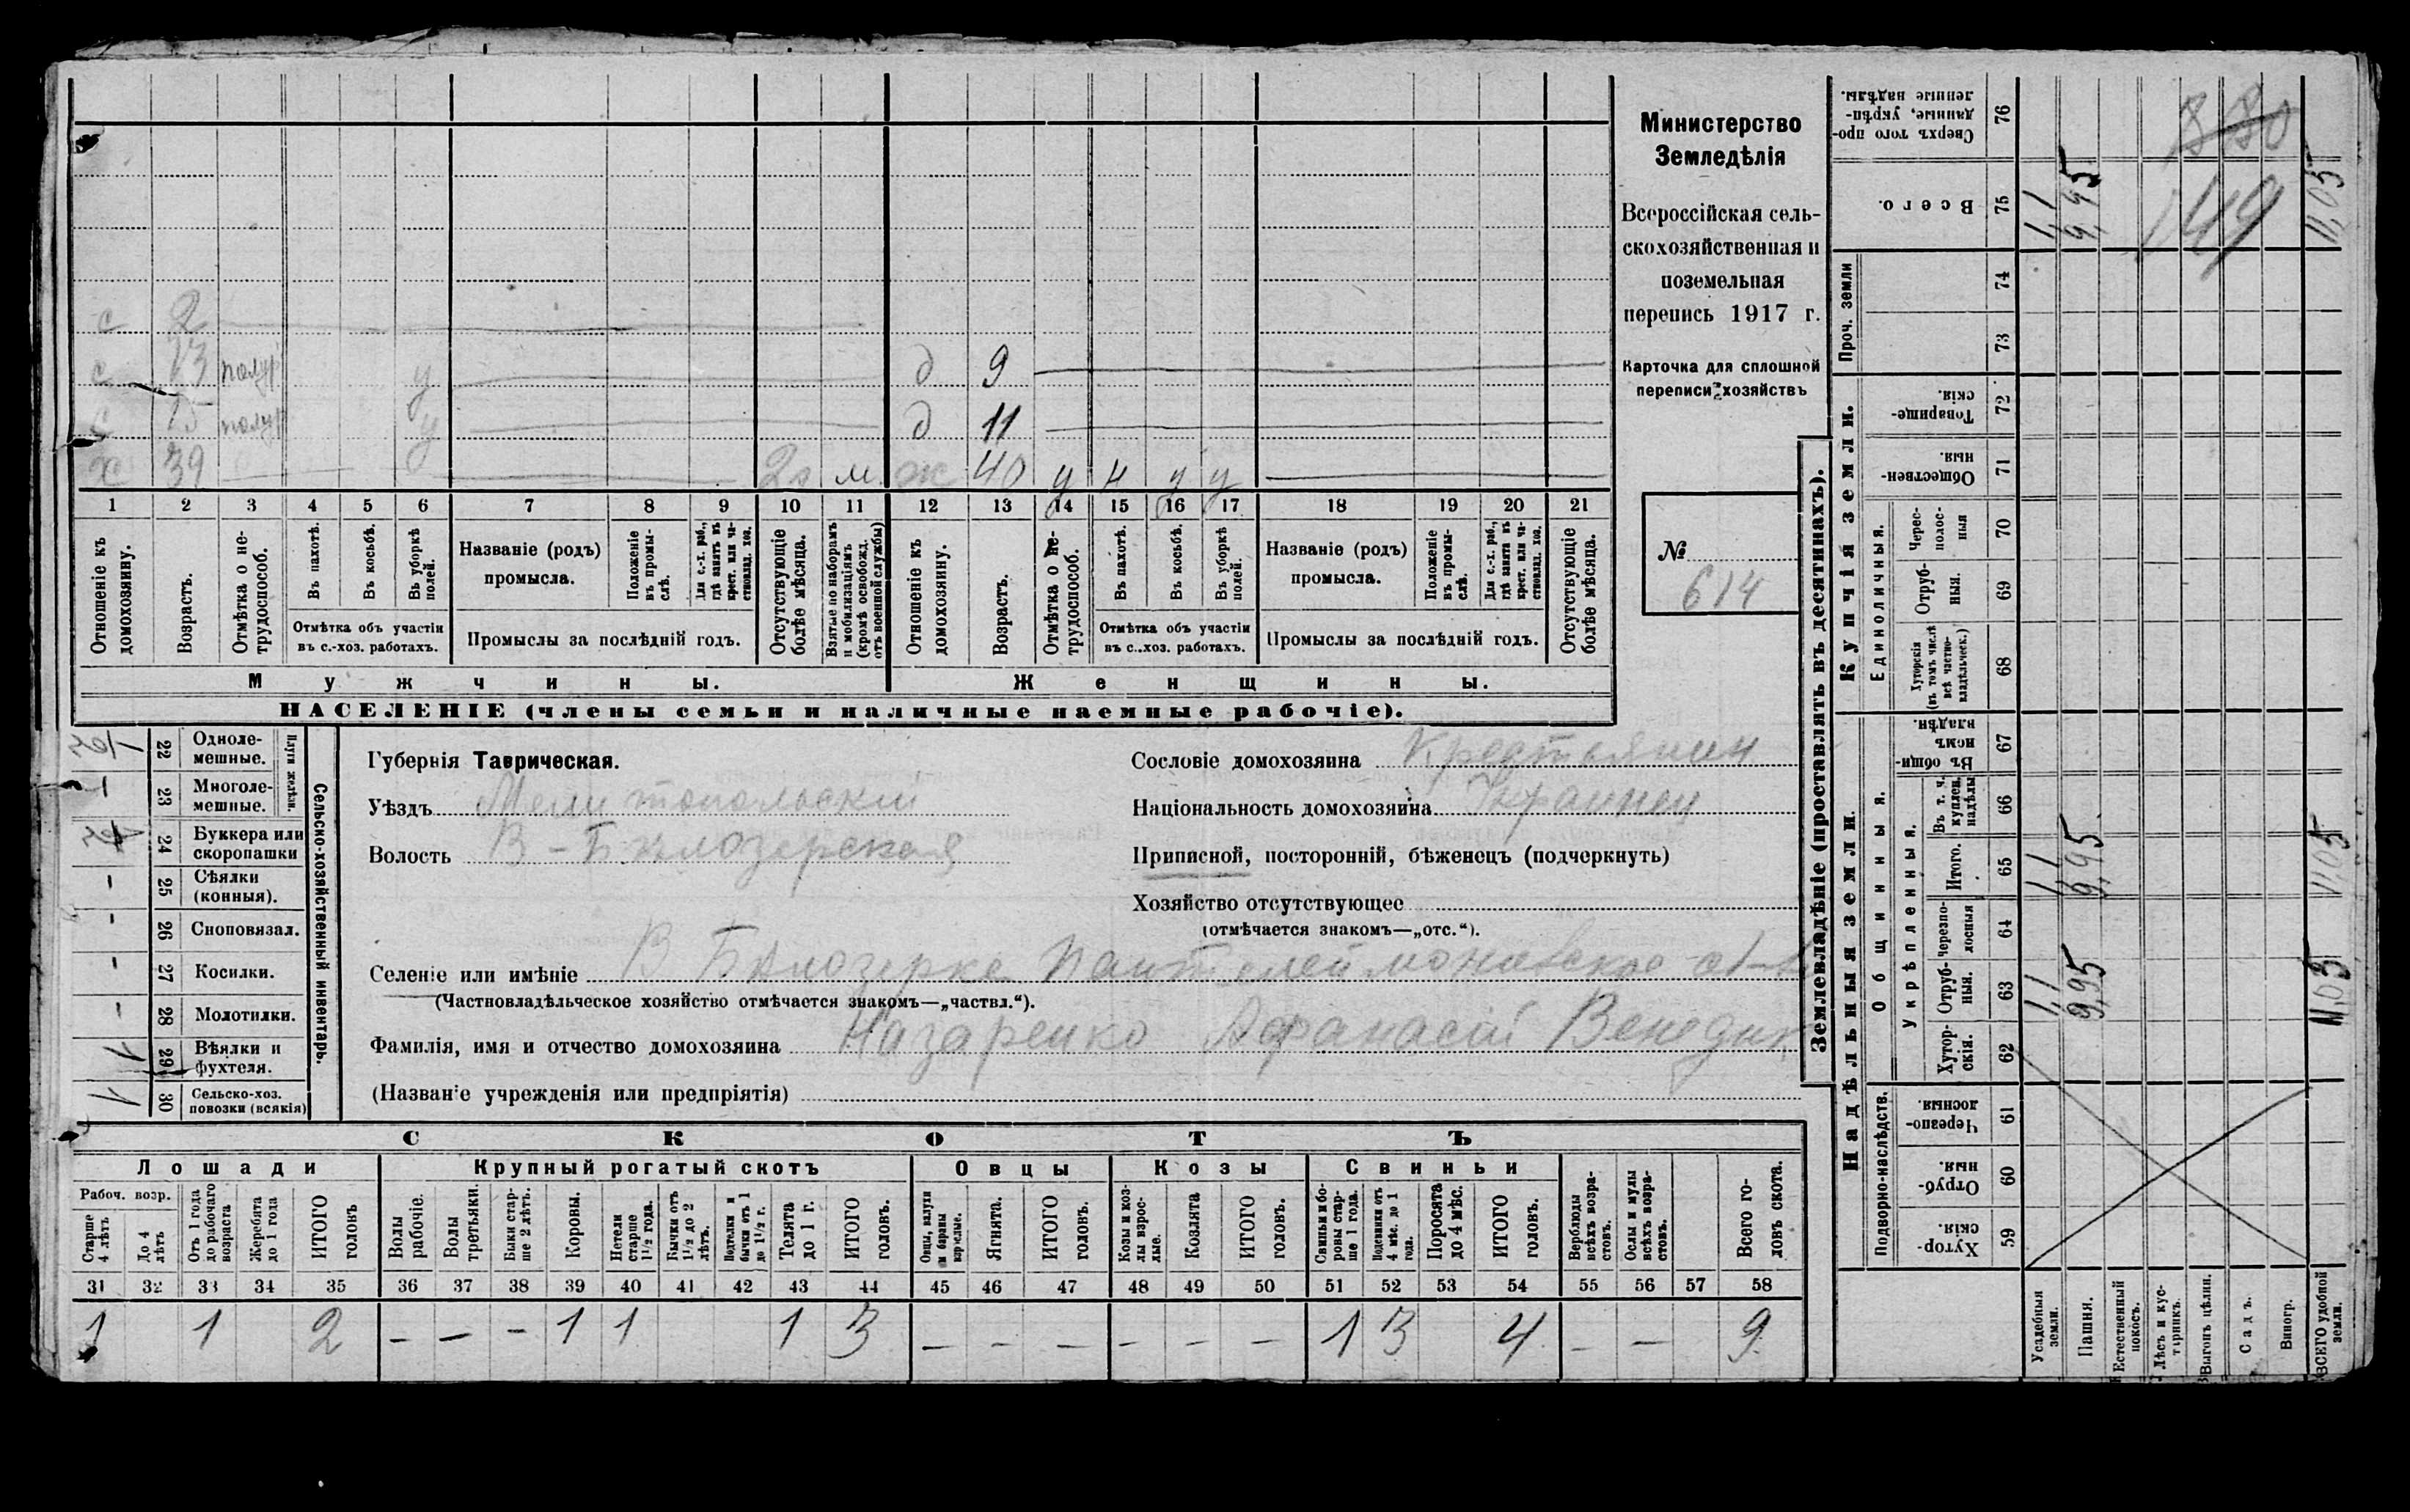 Министерство
Земледѣлія
Всероссійская сель-
скохозяйственная и
поземельная
перепись 1917 г.
Карточка для сплошной
переписи хозяйствъ
№
614
с 2
с 13 полур у д 9
с 15 полур у д 11
х 39 у 2 м ж 40 у н у у
1 2 3 4 5 6 7 8 9 10 11 12 13 14 15 16 17 18 19 20 21
Отношеніе къ домохозяину.
Возрастъ.
Отмѣтка о не-трудоспособ.
Въ пахотѣ.
Въ косьбѣ.
Въ уборкѣ полей.
Отмѣтка объ участіи
въ с.-хоз. работахъ.
Названіе (родъ)
промысла.
Положеніе въ промы-слѣ.
Для с.-х. раб., гдѣ занятъ въ крест. или ча-стновлад. хоз.
Промыслы за послѣдній годъ.
Отсутствующіе болѣе мѣсяца.
Взятые по наборамъ и мобилизаціямъ (кромѣ освобожд. отъ военной службы)
Отношеніе къ домохозяину.
Возрастъ.
Отмѣтка о не-трудоспособ.
Въ пахотѣ.
Въ косьбѣ.
Въ уборкѣ полей.
Отмѣтка объ участіи
въ с..хоз. работахъ.
Названіе (родъ)
промысла.
Положеніе въ промы-слѣ.
Для с.-х. раб., гдѣ занята въ крест. или ча-стновлад. хоз.
Промыслы за послѣдній годъ.
Отсутствующіе болѣе мѣсяца.
Мужчины.
Женщины.
НАСЕЛЕНІЕ (члены семьи и наличные наемные рабочіе).
Сельско-хозяйственный инвентарь.
Плуги желѣзн.
22 Одноле-мешные.
23 Многоле-мешные.
24 Буккера или скоропашки
25 Сѣялки (конныя). -
26 Сноповязал. -
27 Косилки. -
28 Молотилки. -
29 Вѣялки и фухтеля. 1
30 Сельско-хоз. повозки (всякія) 1
Губернія Таврическая.
Уѣздъ Мелитопольскій
Волость В-Бѣлозерская
Сословіе домохозяина Крестьянин
Національность домохозяина Украинец
Приписной, посторонній, бѣженецъ (подчеркнуть)
Хозяйство отсутствующее
(отмѣчается знакомъ—„отс.“).
Селеніе или имѣніе В Бѣлозерка Пантелеймоновское
(Частновладѣльческое хозяйство отмѣчается знакомъ—„частвл.“).
Фамилія, имя и отчество домохозяина Назаренко Афанасій Венедик
(Названіе учрежденія или предпріятія)
СКОТЪ
Лошади
Крупный рогатый скотъ
Овцы
Козы
Свиньи
Рабоч. возр.
Старше 4 лѣтъ
До 4 лѣтъ
Отъ 1 года до рабочаго возраста
Жеребята до 1 года
ИТОГО головъ
Волы рабочіе.
Волы третьяки.
Быки стар-ше 2 лѣтъ.
Коровы.
Нетели старше 1½ года.
Бычки отъ 1½ до 2 лѣтъ.
Подтелки и бычки отъ 1 до 1½ г.
Телята до 1 г.
ИТОГО головъ.
Овцы, валухи и бараны взрослые.
Ягнята.
ИТОГО головъ.
Козы и коз-лы взрос-лые.
Козлята
ИТОГО головъ.
Свиньи и бо-ровы стар-ше 1 года.
Подсвинки отъ 4 мѣс. до 1 года.
Поросята до 4 мѣс.
ИТОГО головъ.
Верблюды всѣхъ возра-стовъ.
Ослы и мулы всѣхъ возра-стовъ.
Всего го-ловъ скота.
31 32 33 34 35 36 37 38 39 40 41 42 43 44 45 46 47 48 49 50 51 52 53 54 55 56 57 58
1 1 2 - - - 1 1 1 3 - - - - - - 1 3 4 - - 9
Землевладѣніе (проставлять въ десятинахъ).
Надѣльныя земли.
Купчія земли.
Проч. земли
Подворно-наслѣдств.
Общинныя.
Укрѣпленныя.
Единоличныя.
76 Сверхъ того про-данные, укрѣп-ленные надѣлы.
75 Всего.
74
73
72 Товарище-скія.
71 Обществен-ныя.
70 Черес-полос-ныя
69 Отруб-ныя.
68 Хуторскія (въ томъ числѣ всѣ частно-владѣльческ.)
67 Въ общин-номъ владѣн.
66 Въ т. ч. куплен. надѣлы
65 Итого.
64 Черезпо-лосныя
63 Отруб-ныя.
62 Хутор-скія.
61 Черезпо-лосныя.
60 Отруб-ныя.
59 Хутор-скія.
Усадебныя земли.
Пашня.
Естественный покосъ.
Лѣсъ и кус-тарникъ.
Выгонъ цѣлин.
Садъ.
Виногр.
ВСЕГО удобной земли.
1,1 9,95 11,05
1,1 9,95 11,05
1,1 9,95 11,05
880
149